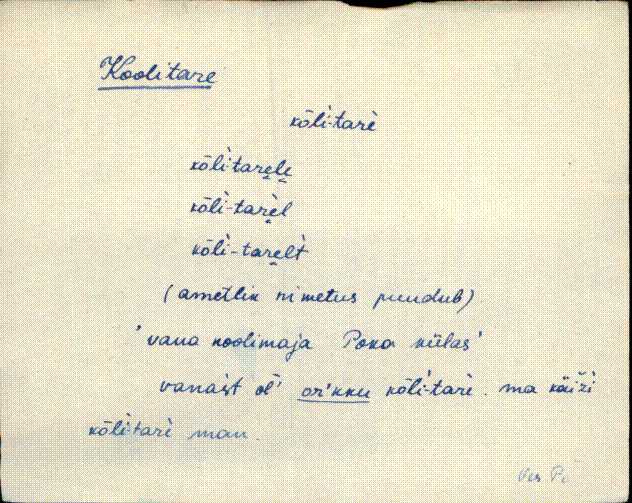 Koolitare
kōlì-tarè
kōlì-tarẹlẹ
kōlì-tarẹ̀l
kōlì-tarẹlt̀
(ametlik nimetus puudub)
'vana koolimaja Poka külas'
vanàst ol̀ or'kku kōlì-tarè. ma käizì
kōlì-tarè man.